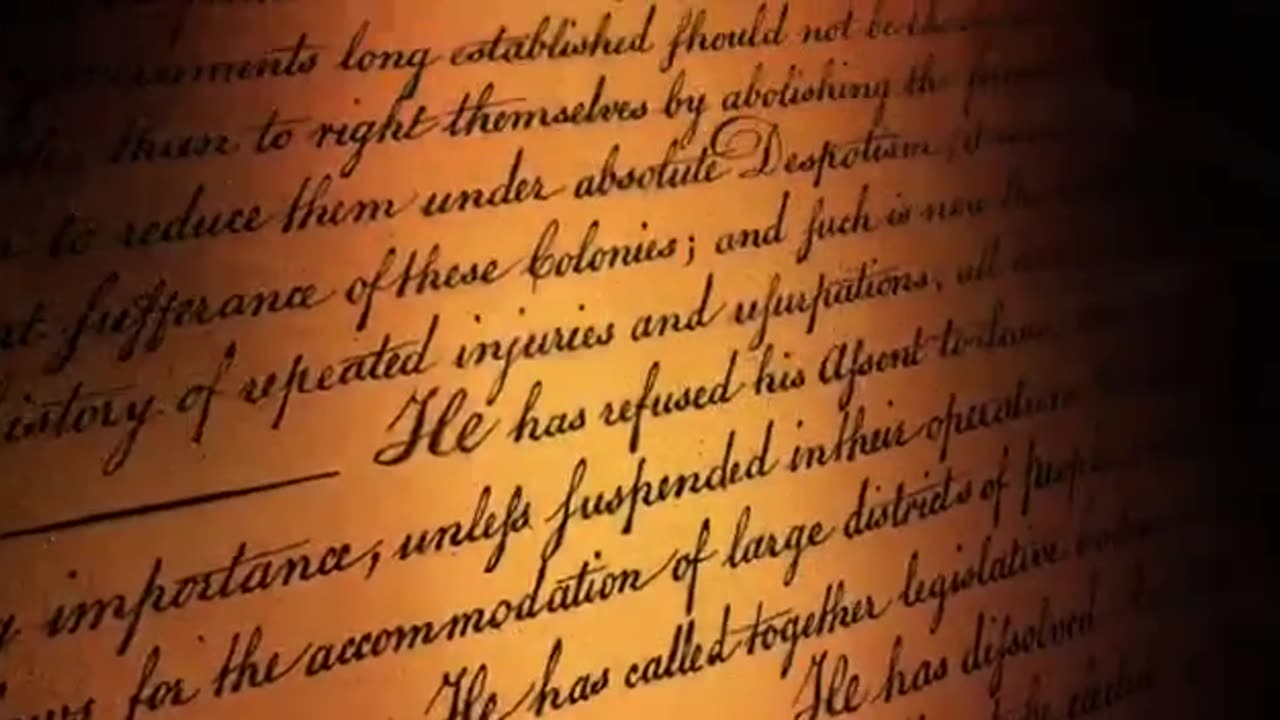 long established ſhould not be
them to right themselves by abolishing the
to reduce them under absolute Despotism, it
ſufferance of these Colonies; and ſuch is now the
history of repeated injuries and uſurpations, all
He has refused his Aſsent to Laws,
importance, unleſs ſuspended in their operation
for the accommodation of large districts of people
He has called together legislative
He has diſsolved